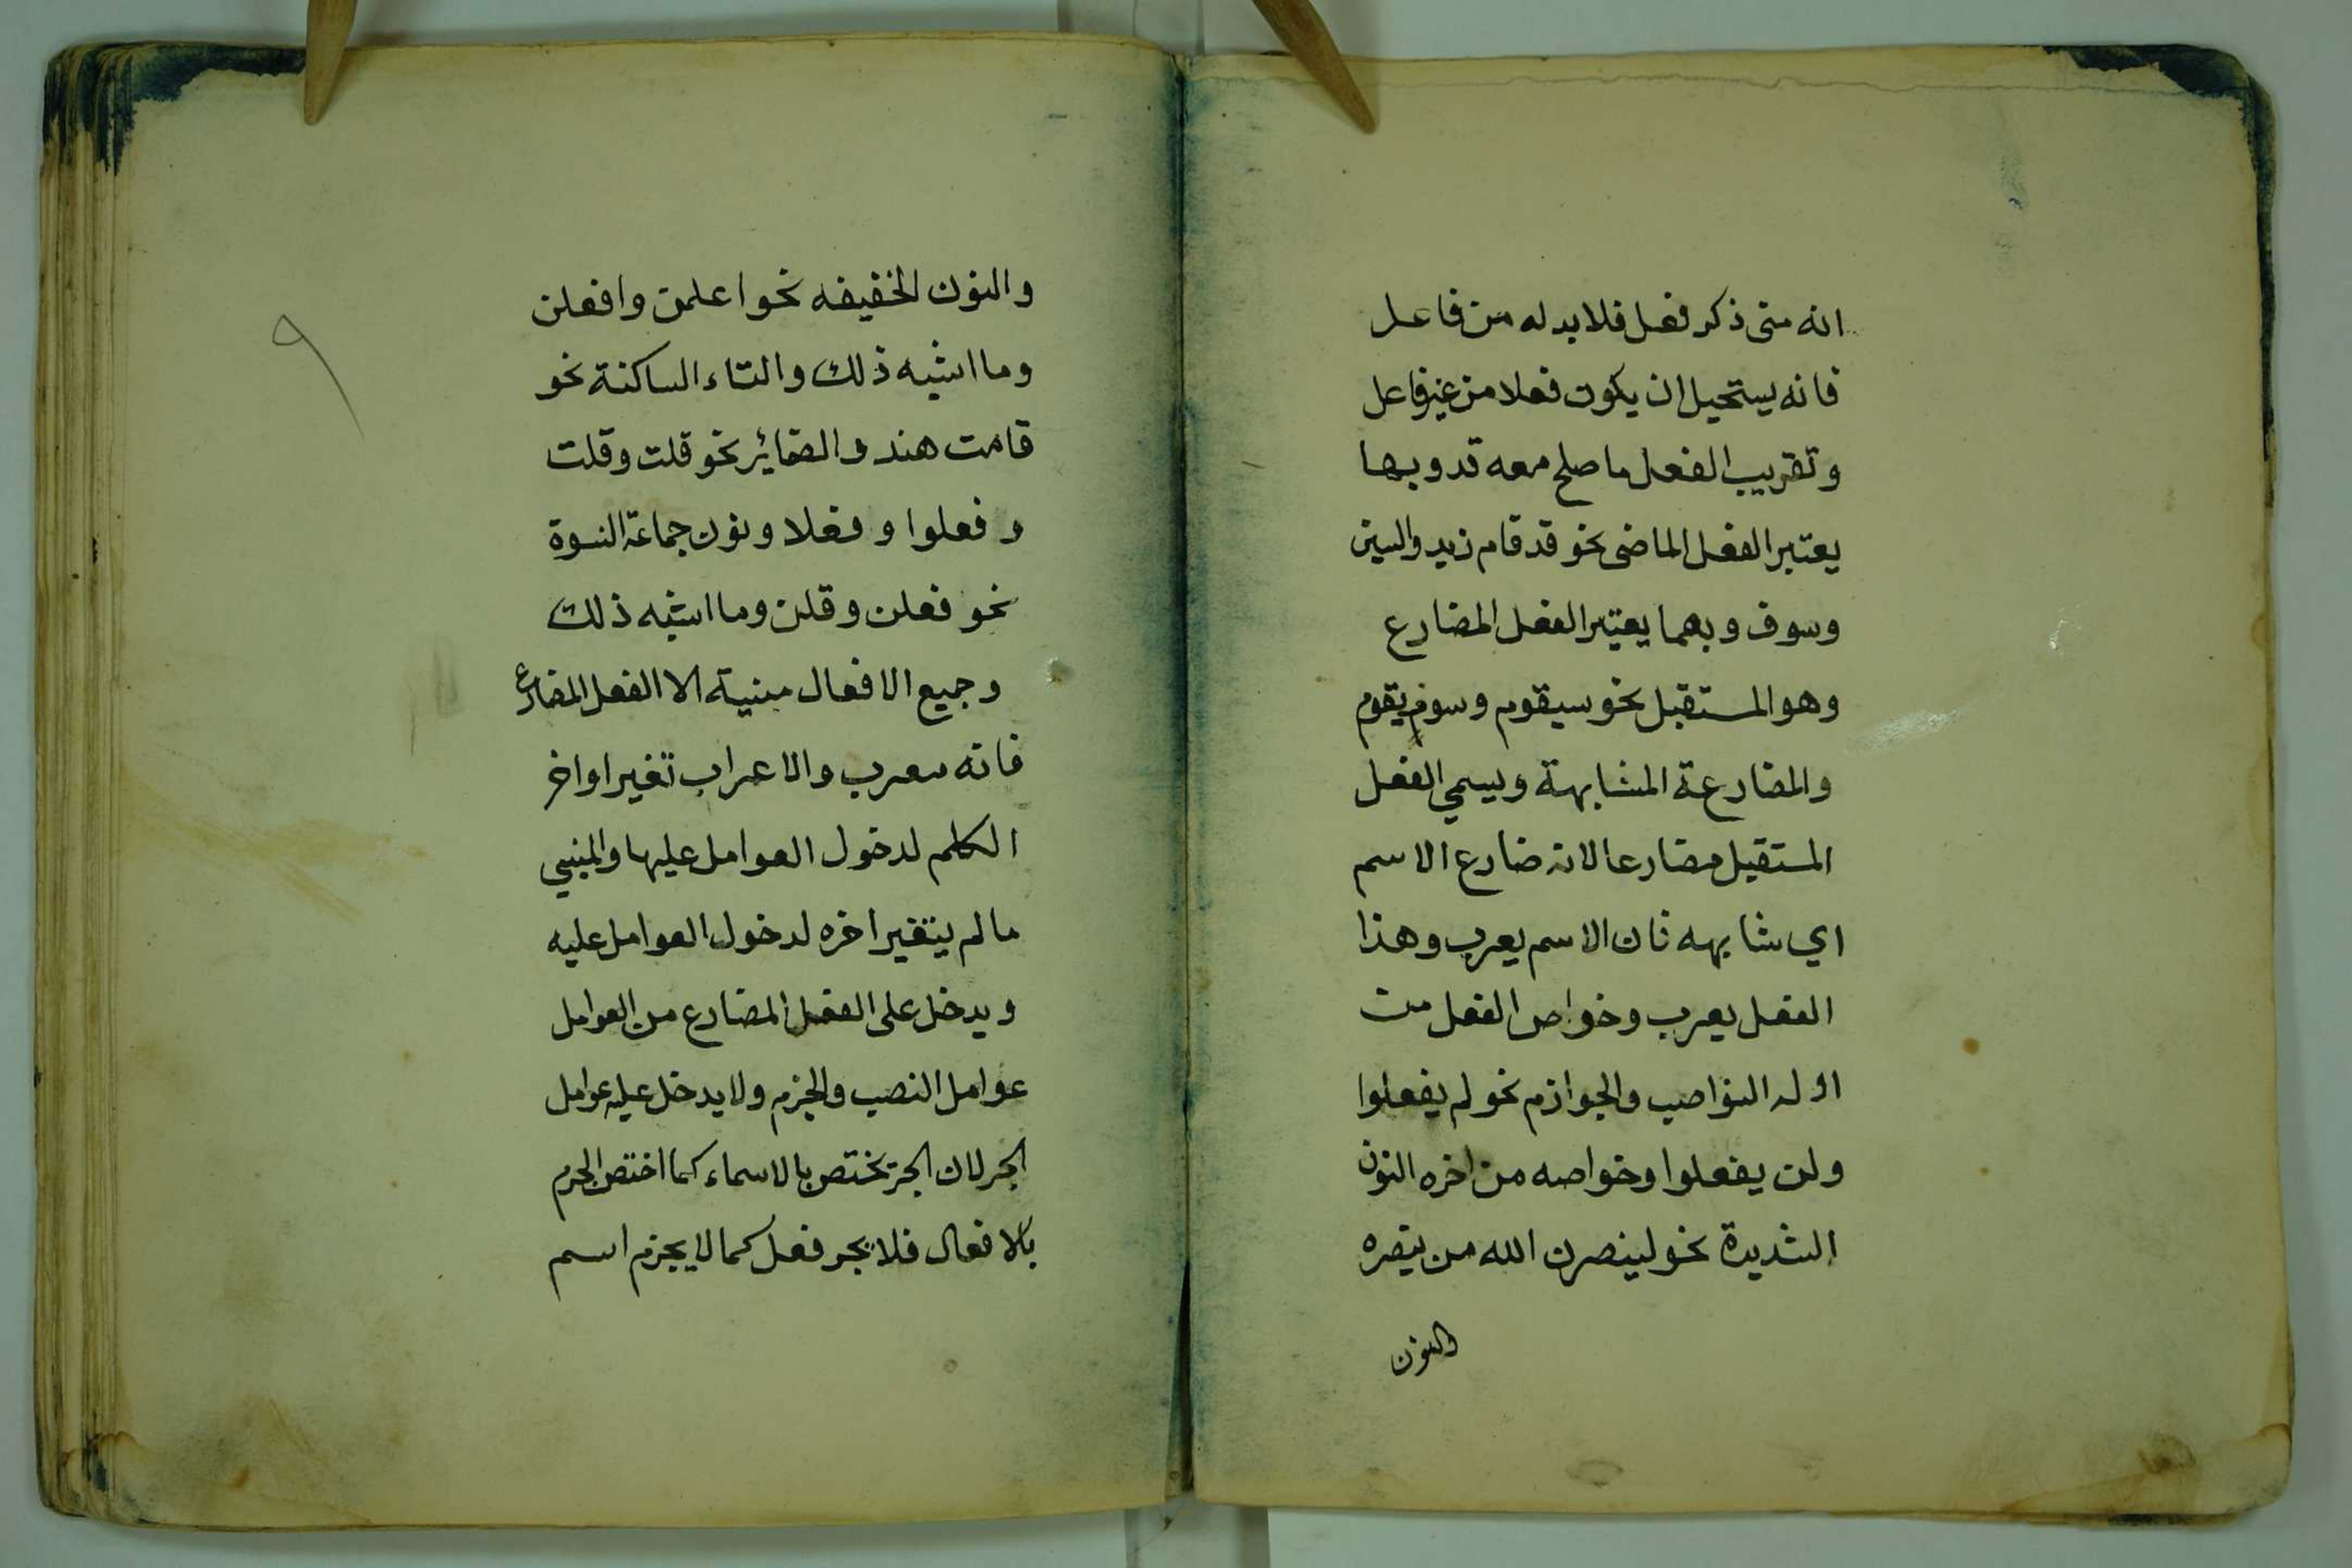 انه متى ذكر فعل فلا بد له من فاعل
فانه يستحيل ان يكون فعلا من غير فاعل
وتقريب الفعل ما صلح معه قد وبها
يعتبر الفعل الماضى نحو قد قام زيد والسين
وسوف وبهما يعتبر الفعل المضارع
وهو المستقبل نحو سيقوم وسوف يقوم
والمضارعة المشابهة ويسمي الفعل
المستقبل مضارعا لانه ضارع الاسم
اي شابهه فان الاسم يعرب وهذا
الفعل يعرب وخواص الفعل من
اوله النواصب والجوازم نحو لم يفعلوا
ولن يفعلوا وخواصه من اخره النون
الشديدة نحو لينصرن الله من ينصره
والنون
والنون الخفيفه نحو اعلمن وافعلن
وما اشبه ذلك والتاء الساكنة نحو
قامت هند والضمائر نحو قلت وقلت
وفعلوا وفعلا ونون جماعة النسوة
نحو فعلن وقلن وما اشبه ذلك
وجميع الافعال مبنية الا الفعل المضارع
فانه معرب والاعراب تغير اواخر
الكلم لدخول العوامل عليها والمبني
ما لم يتغير اخره لدخول العوامل عليه
ويدخل على الفعل المضارع من العوامل
عوامل النصب والجزم ولا يدخل عليه عوامل
الجر لان الجر تختص بالاسماء كما اختص الجزم
بالافعال فلا يجر فعل كما لا يجزم اسم
٩